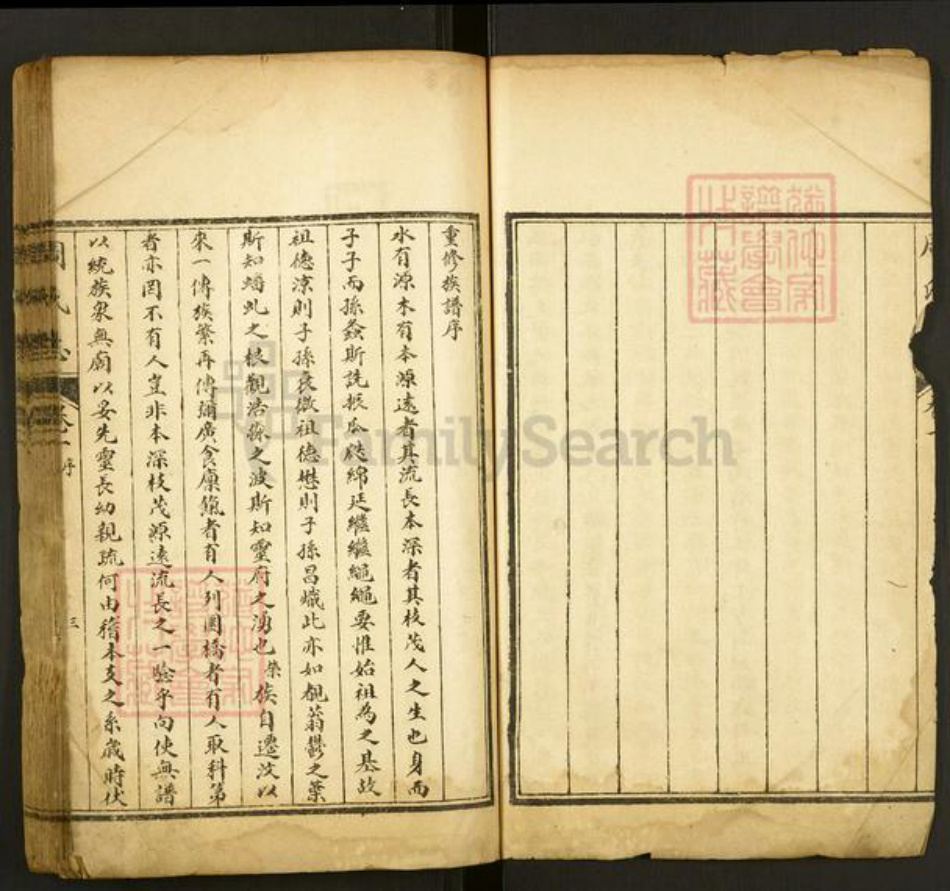 重修族譜序
水有源木有本源遠者其流長本深者其枝茂人之生也身而
子子而孫螽斯詵振瓜瓞綿延繼繼繩繩要惟始祖為之基故
祖德涼則子孫衰微祖德懋則子孫昌熾此亦如覩蓊鬱之葉
斯知蟠虬之根觀浩淼之波斯知靈府之湧也榮族自遷汶以
來一傳族繁再傳彌廣食廩餼者有人列圜橋者有人取科第
者亦罔不有人豈非本深枝茂源遠流長之一驗乎向使無譜
以統族衆無廟以妥先靈長幼親疏何由稽本支之系歲時伏
周氏志
卷一
序
三
FamilySearch